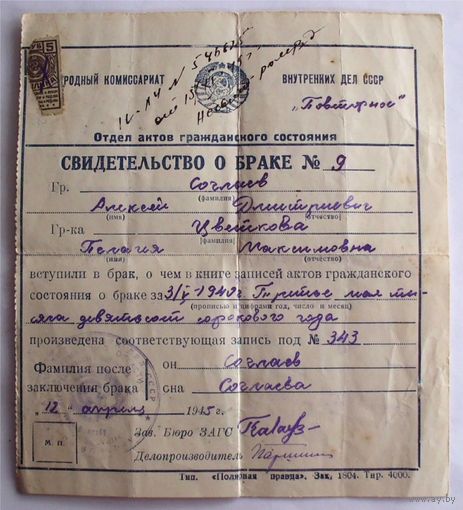 НАРОДНЫЙ КОМИССАРИАТ ВНУТРЕННИХ ДЕЛ СССР
IV-АЧ N 546625
"Повторное"
Отдел актов гражданского состояния
СВИДЕТЕЛЬСТВО О БРАКЕ № 9
Гр. Согласов
(фамилия)
Алексей Дмитриевич
(имя) (отчество)
Гр-ка Цветкова
(фамилия)
Пелагия Максимовна
(имя) (отчество)
вступили в брак, о чем в книге записей актов гражданского
состояния о браке за 3/V 1940г Третье мая ты-
(прописью и цифрами год, число и месяц)
сяча девятьсот сорокового года
произведена соответствующая запись под № 343
Фамилия после заключения брака
он Согласов
она Согласова
"12" апреля 1945 г.
М. П.
Зав. Бюро ЗАГС
Делопроизводитель
Тип. «Полярная правда». Зак. 1804. Тир. 4000.
www.ay.by